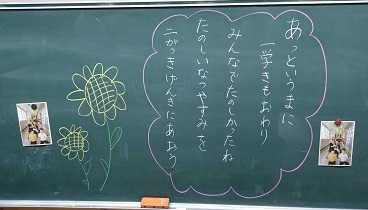 あっというまに
一学きもおわり
みんなでたのしかったね
たのしいなつやすみを
二がっきげんきにあおう